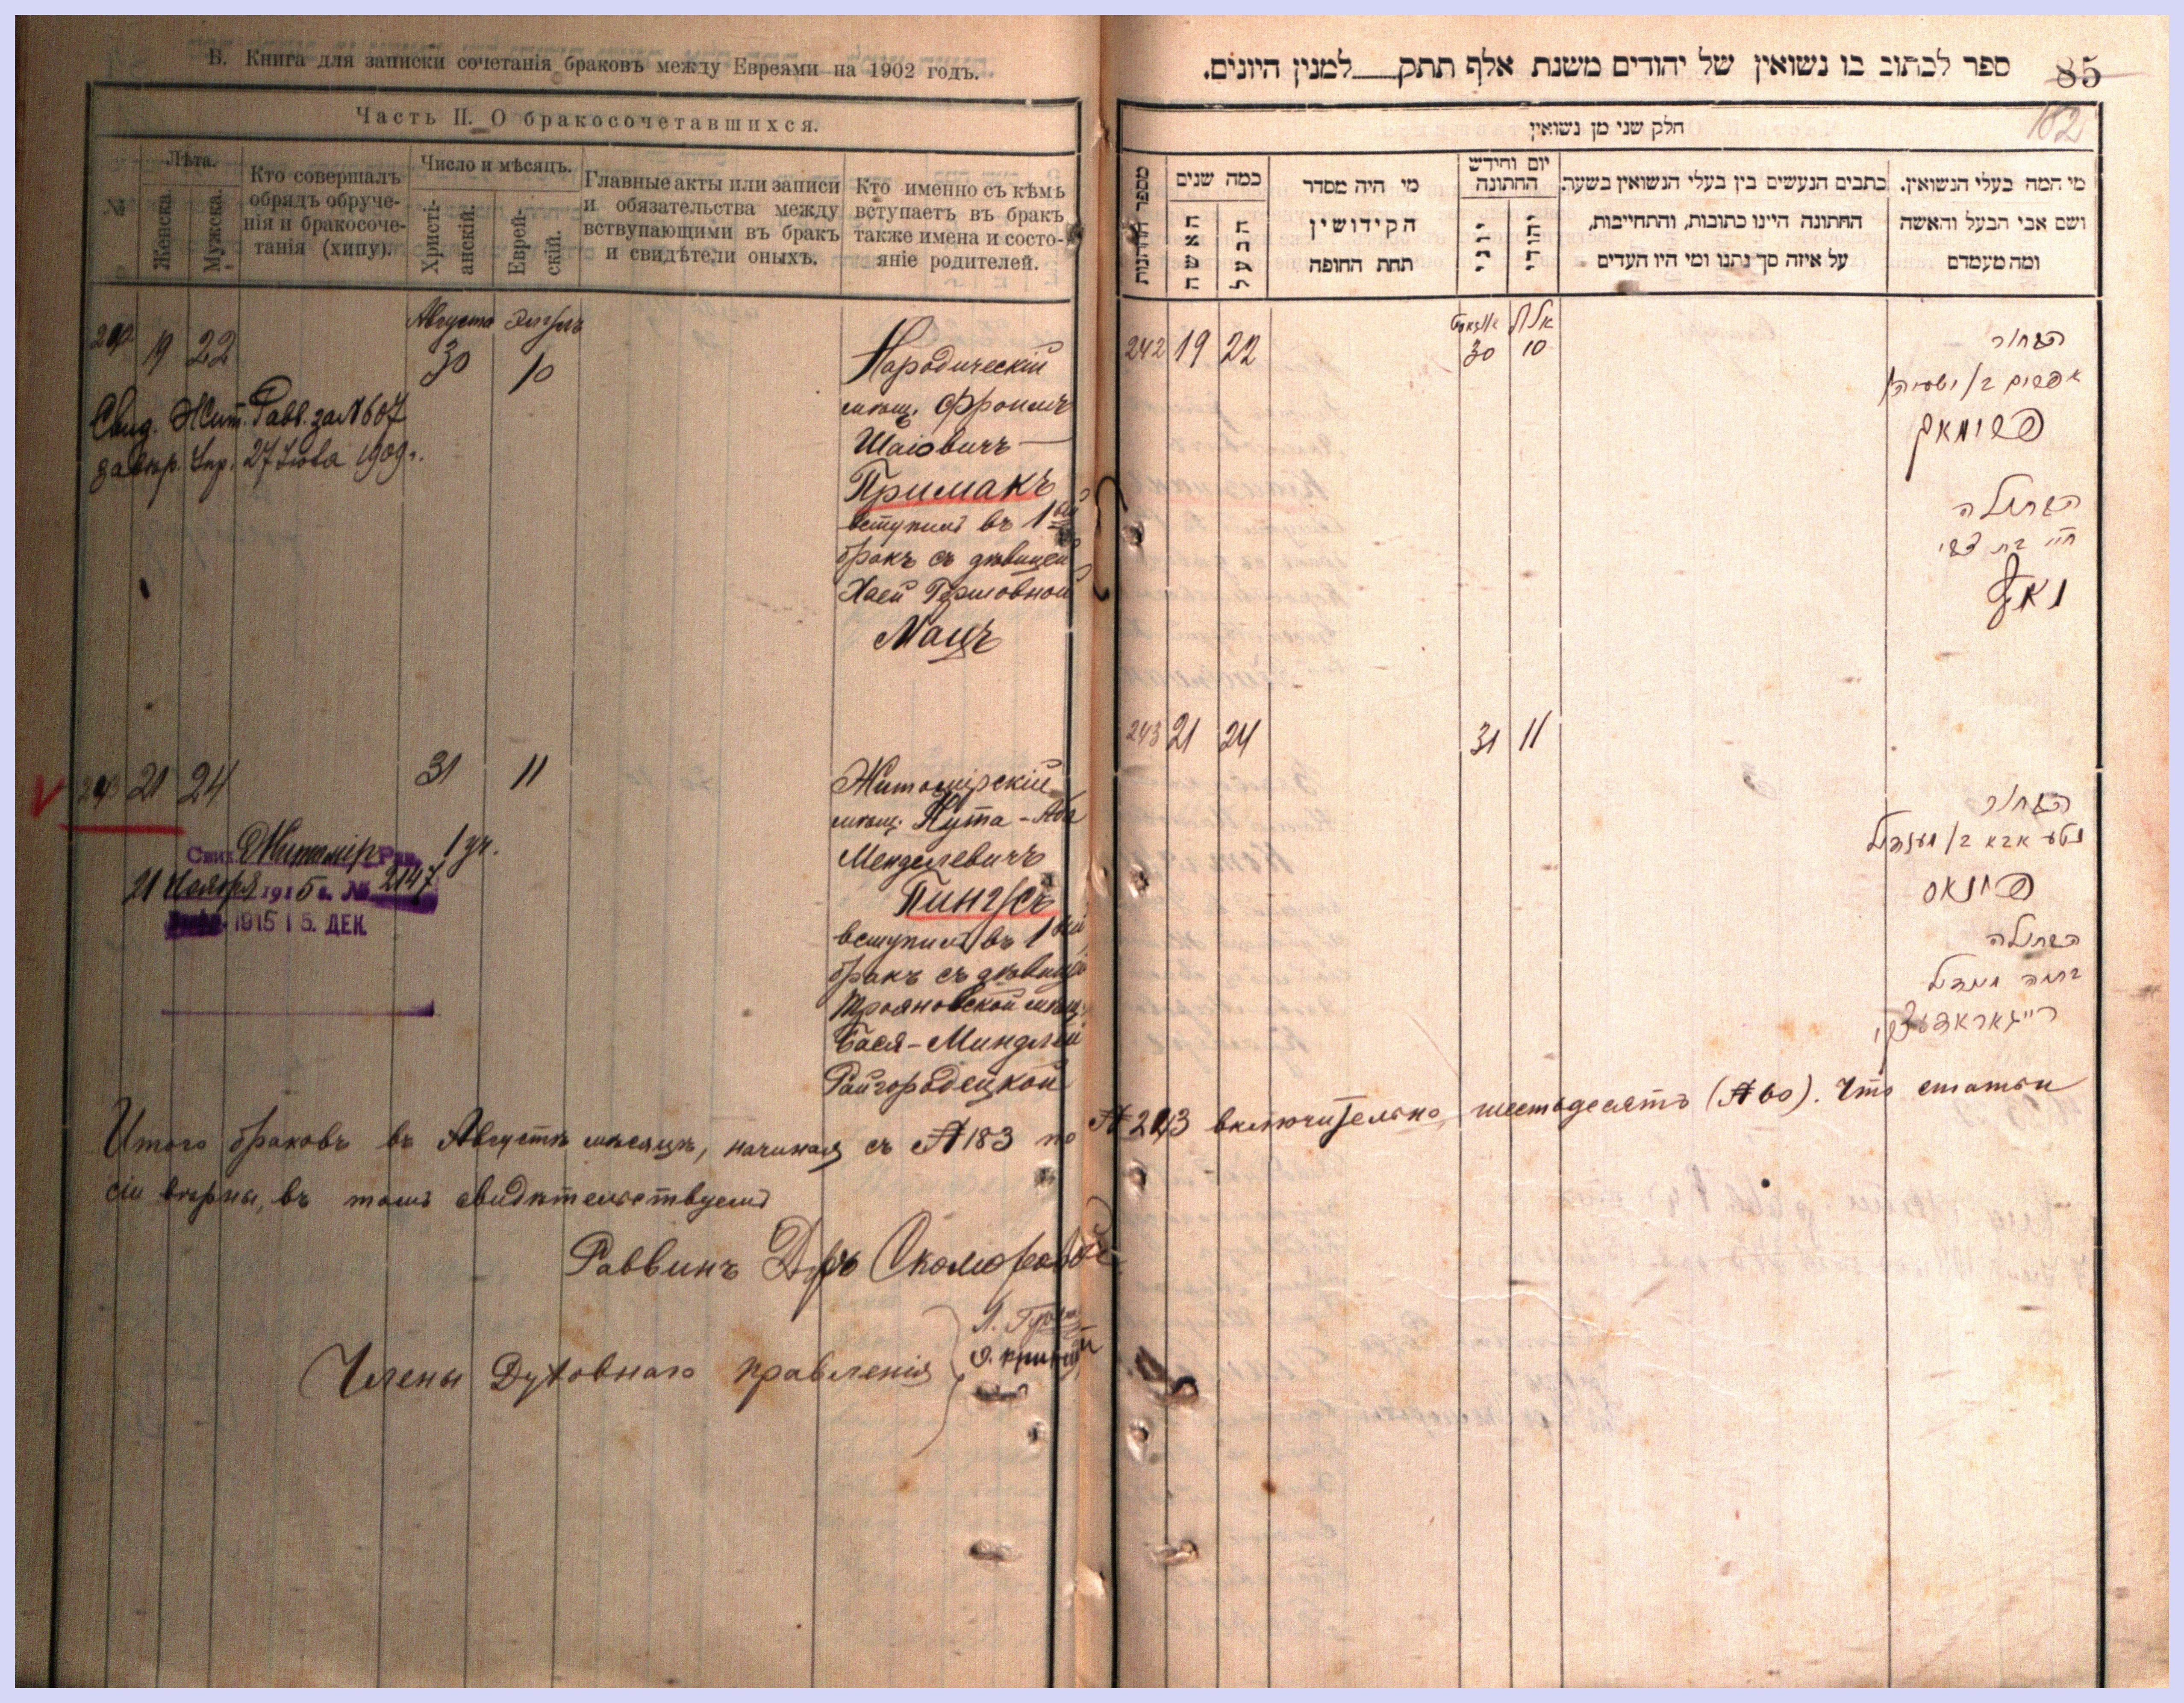 Б. Книга для записки сочетанія браковъ между Евреями на 1902 годъ.
Часть II. О бракосочетавшихся.
№
Лѣта.
Женска.
Мужска.
Кто совершалъ
обрядъ обруче-
нія и бракосоче-
танія (хипу).
Число и мѣсяцъ.
Христі-
анскій.
Еврей-
скій.
Главные акты или записи
и обязательства между
вствупающими въ бракъ
и свидѣтели оныхъ.
Кто именно съ кѣмъ
вступаетъ въ бракъ
также имена и состо-
яніе родителей.
Августа
242 19 22 30 10
Свид. Жит. Равв. за № 607
27 1909 г.
Народическій
мѣщ. Фроимъ
Шаіовичъ
Примакъ
вступилъ въ 1ый
бракъ съ дѣвицей
Хаей Гершовной
Мацъ
243 21 24 31 11
Свид. Житомір. Рав.
21 Ноября 1915 г. № 2147
1915 15. ДЕК.
Житомірскій
мѣщ. Нута-Аба
Менделевичъ
Пингусъ
вступилъ въ 1ый
бракъ съ дѣвицей
Трояновской мѣщ.
Бася-Миндлей
Райгородецкой
Итого браковъ въ Августѣ мѣсяцѣ, начиная съ № 183 по № 243 включительно, шестьдесятъ (№ 60). Что статьи
сіи вѣрны, въ томъ свидѣтельствуемъ
Раввинъ Д-ръ Скоморовскій
Члены Духовнаго правленія
85
182
ספר לכתוב בו נשואין של יהודים משנת אלף תתק למנין היונים.
חלק שני מן נשואין
מספר החתונות
כמה שנים
האשה
הבעל
מי היה מסדר
הקידושין
תחת החופה
יום וחידש
החתונה
יוני
יהודי
כתבים הנעשים בין בעלי הנשואין בשעת
החתונה היינו כתובות, והתחייבות,
על איזה סך נתנו ומי היו העדים
מי המה בעלי הנשואין.
ושם אבי הבעל והאשה
ומה מעמדם
אויגוסט אלול
242 19 22 30 10
הבחור
אפרים ב/ ישעיה
פרימאק
הבתולה
חי׳ בת צבי
מאץ
243 21 24 31 11
הבחור
נטע אבא ב/ מענדיל
פינגאס
הבתולה
בתי׳ מינדיל
רייגאראדעצקי